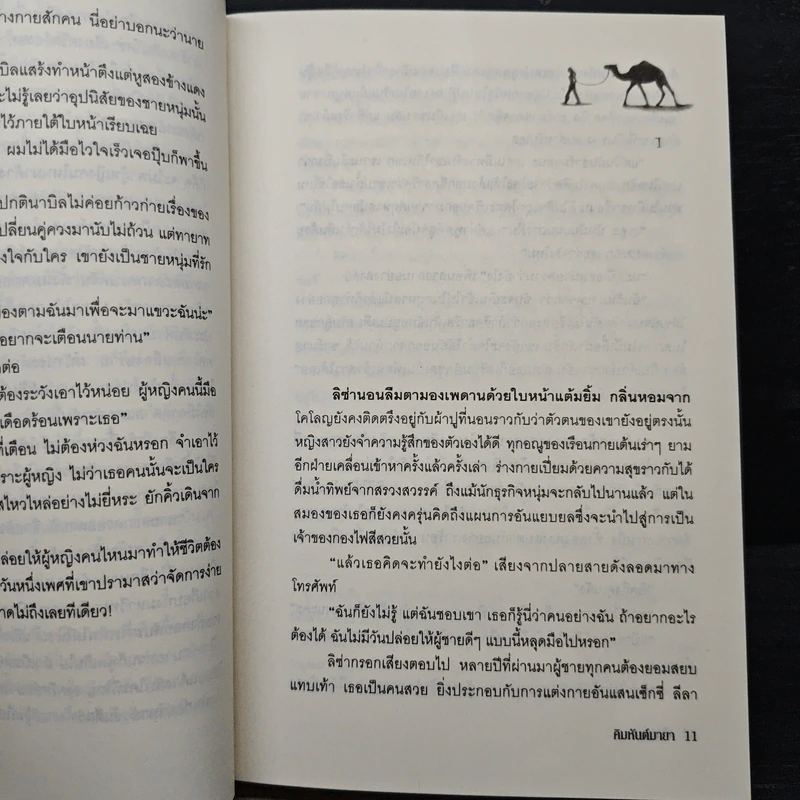 างกายสักคน นี่อย่าบอกนะว่านาย
บิลแสร้งทำหน้าตึงแต่หูสองข้างแดง
ะไม่รู้เลยว่าอุปนิสัยของชายหนุ่มนั้น
ไว้ภายใต้ใบหน้าเรียบเฉย
ผมไม่ได้มือไวใจเร็วเจอปุ๊บก็พาขึ้น
ปกตินาบิลไม่ค่อยก้าวก่ายเรื่องของ
ปลี่ยนคู่ควงมานับไม่ถ้วน แต่ทายาท
งใจกับใคร เขายังเป็นชายหนุ่มที่รัก
องตามฉันมาเพื่อจะมาแขวะฉันน่ะ”
อยากจะเตือนนายท่าน”
ต่อ
ต้องระวังเอาไว้หน่อย ผู้หญิงคนนี้มือ
เดือดร้อนเพราะเธอ”
ที่เตือน ไม่ต้องห่วงฉันหรอก จำเอาไว้
ราะผู้หญิง ไม่ว่าเธอคนนั้นจะเป็นใคร
สไหวไหล่อย่างไม่ยี่หระ ยักคิ้วเดินจาก
ล่อยให้ผู้หญิงคนไหนมาทำให้ชีวิตต้อง
วันหนึ่งเพศที่เขาปรามาสว่าจัดการง่าย
าดไม่ถึงเลยทีเดียว!
1
ลิซ่านอนลืมตามองเพดานด้วยใบหน้าแต้มยิ้ม กลิ่นหอมจาก
โคโลญยังคงติดตรึงอยู่กับผ้าปูที่นอนราวกับว่าตัวตนของเขายังอยู่ตรงนั้น
หญิงสาวยังจำความรู้สึกของตัวเองได้ดี ทุกอณูของเรือนกายเต้นเร่าๆ ยาม
อีกฝ่ายเคลื่อนเข้าหาครั้งแล้วครั้งเล่า ร่างกายเปี่ยมด้วยความสุขราวกับได้
ดื่มน้ำทิพย์จากสรวงสวรรค์ ถึงแม้นักธุรกิจหนุ่มจะกลับไปนานแล้ว แต่ใน
สมองของเธอก็ยังคงครุ่นคิดถึงแผนการอันแยบยลซึ่งจะนำไปสู่การเป็น
เจ้าของกองไฟสีสวยนั้น
“แล้วเธอคิดจะทำยังไงต่อ” เสียงจากปลายสายดังลอดมาทาง
โทรศัพท์
“ฉันก็ยังไม่รู้ แต่ฉันชอบเขา เธอก็รู้นี่ว่าคนอย่างฉัน ถ้าอยากอะไร
ต้องได้ ฉันไม่มีวันปล่อยให้ผู้ชายดีๆ แบบนี้หลุดมือไปหรอก”
ลิซ่ากรอกเสียงตอบไป หลายปีที่ผ่านมาผู้ชายทุกคนต้องยอมสยบ
แทบเท้า เธอเป็นคนสวย ยิ่งประกอบกับการแต่งกายอันแสนเซ็กซี่ ลีลา
คิมหันต์มายา 11